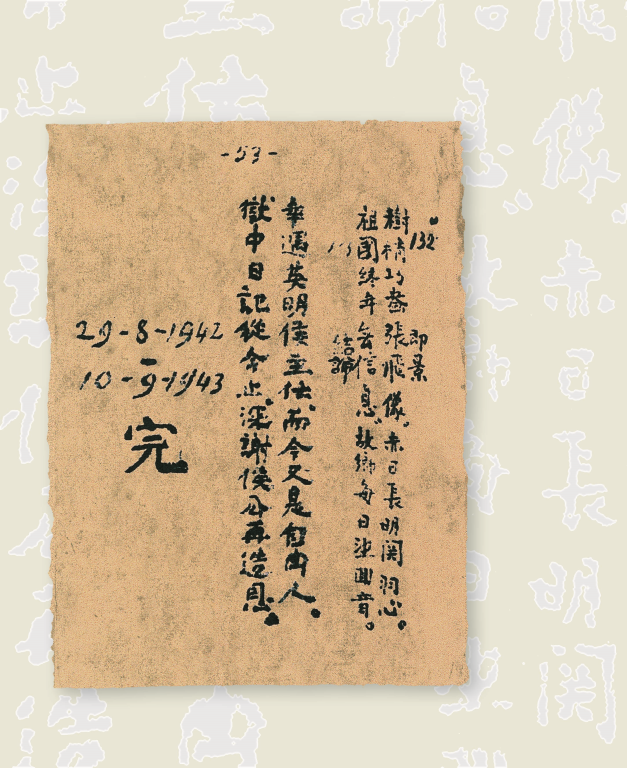 -53-
132 即景
樹梢巧畫張飛像。赤日長明関羽心。
祖國終年無信息。故鄉每日望囬音。
結論
幸遇英明侯主任。而今又是自由人。
獄中日記從今止。深謝侯公再造恩。
29-8-1942
-
10-9-1943
完